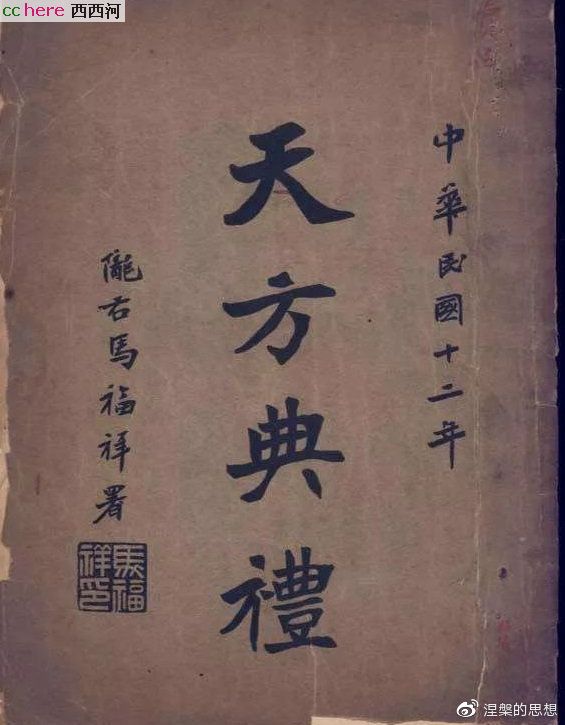 cchere 西西河
中華民國十二年
天方典禮
隴右馬福祥署
馬福祥印
涅槃的思想